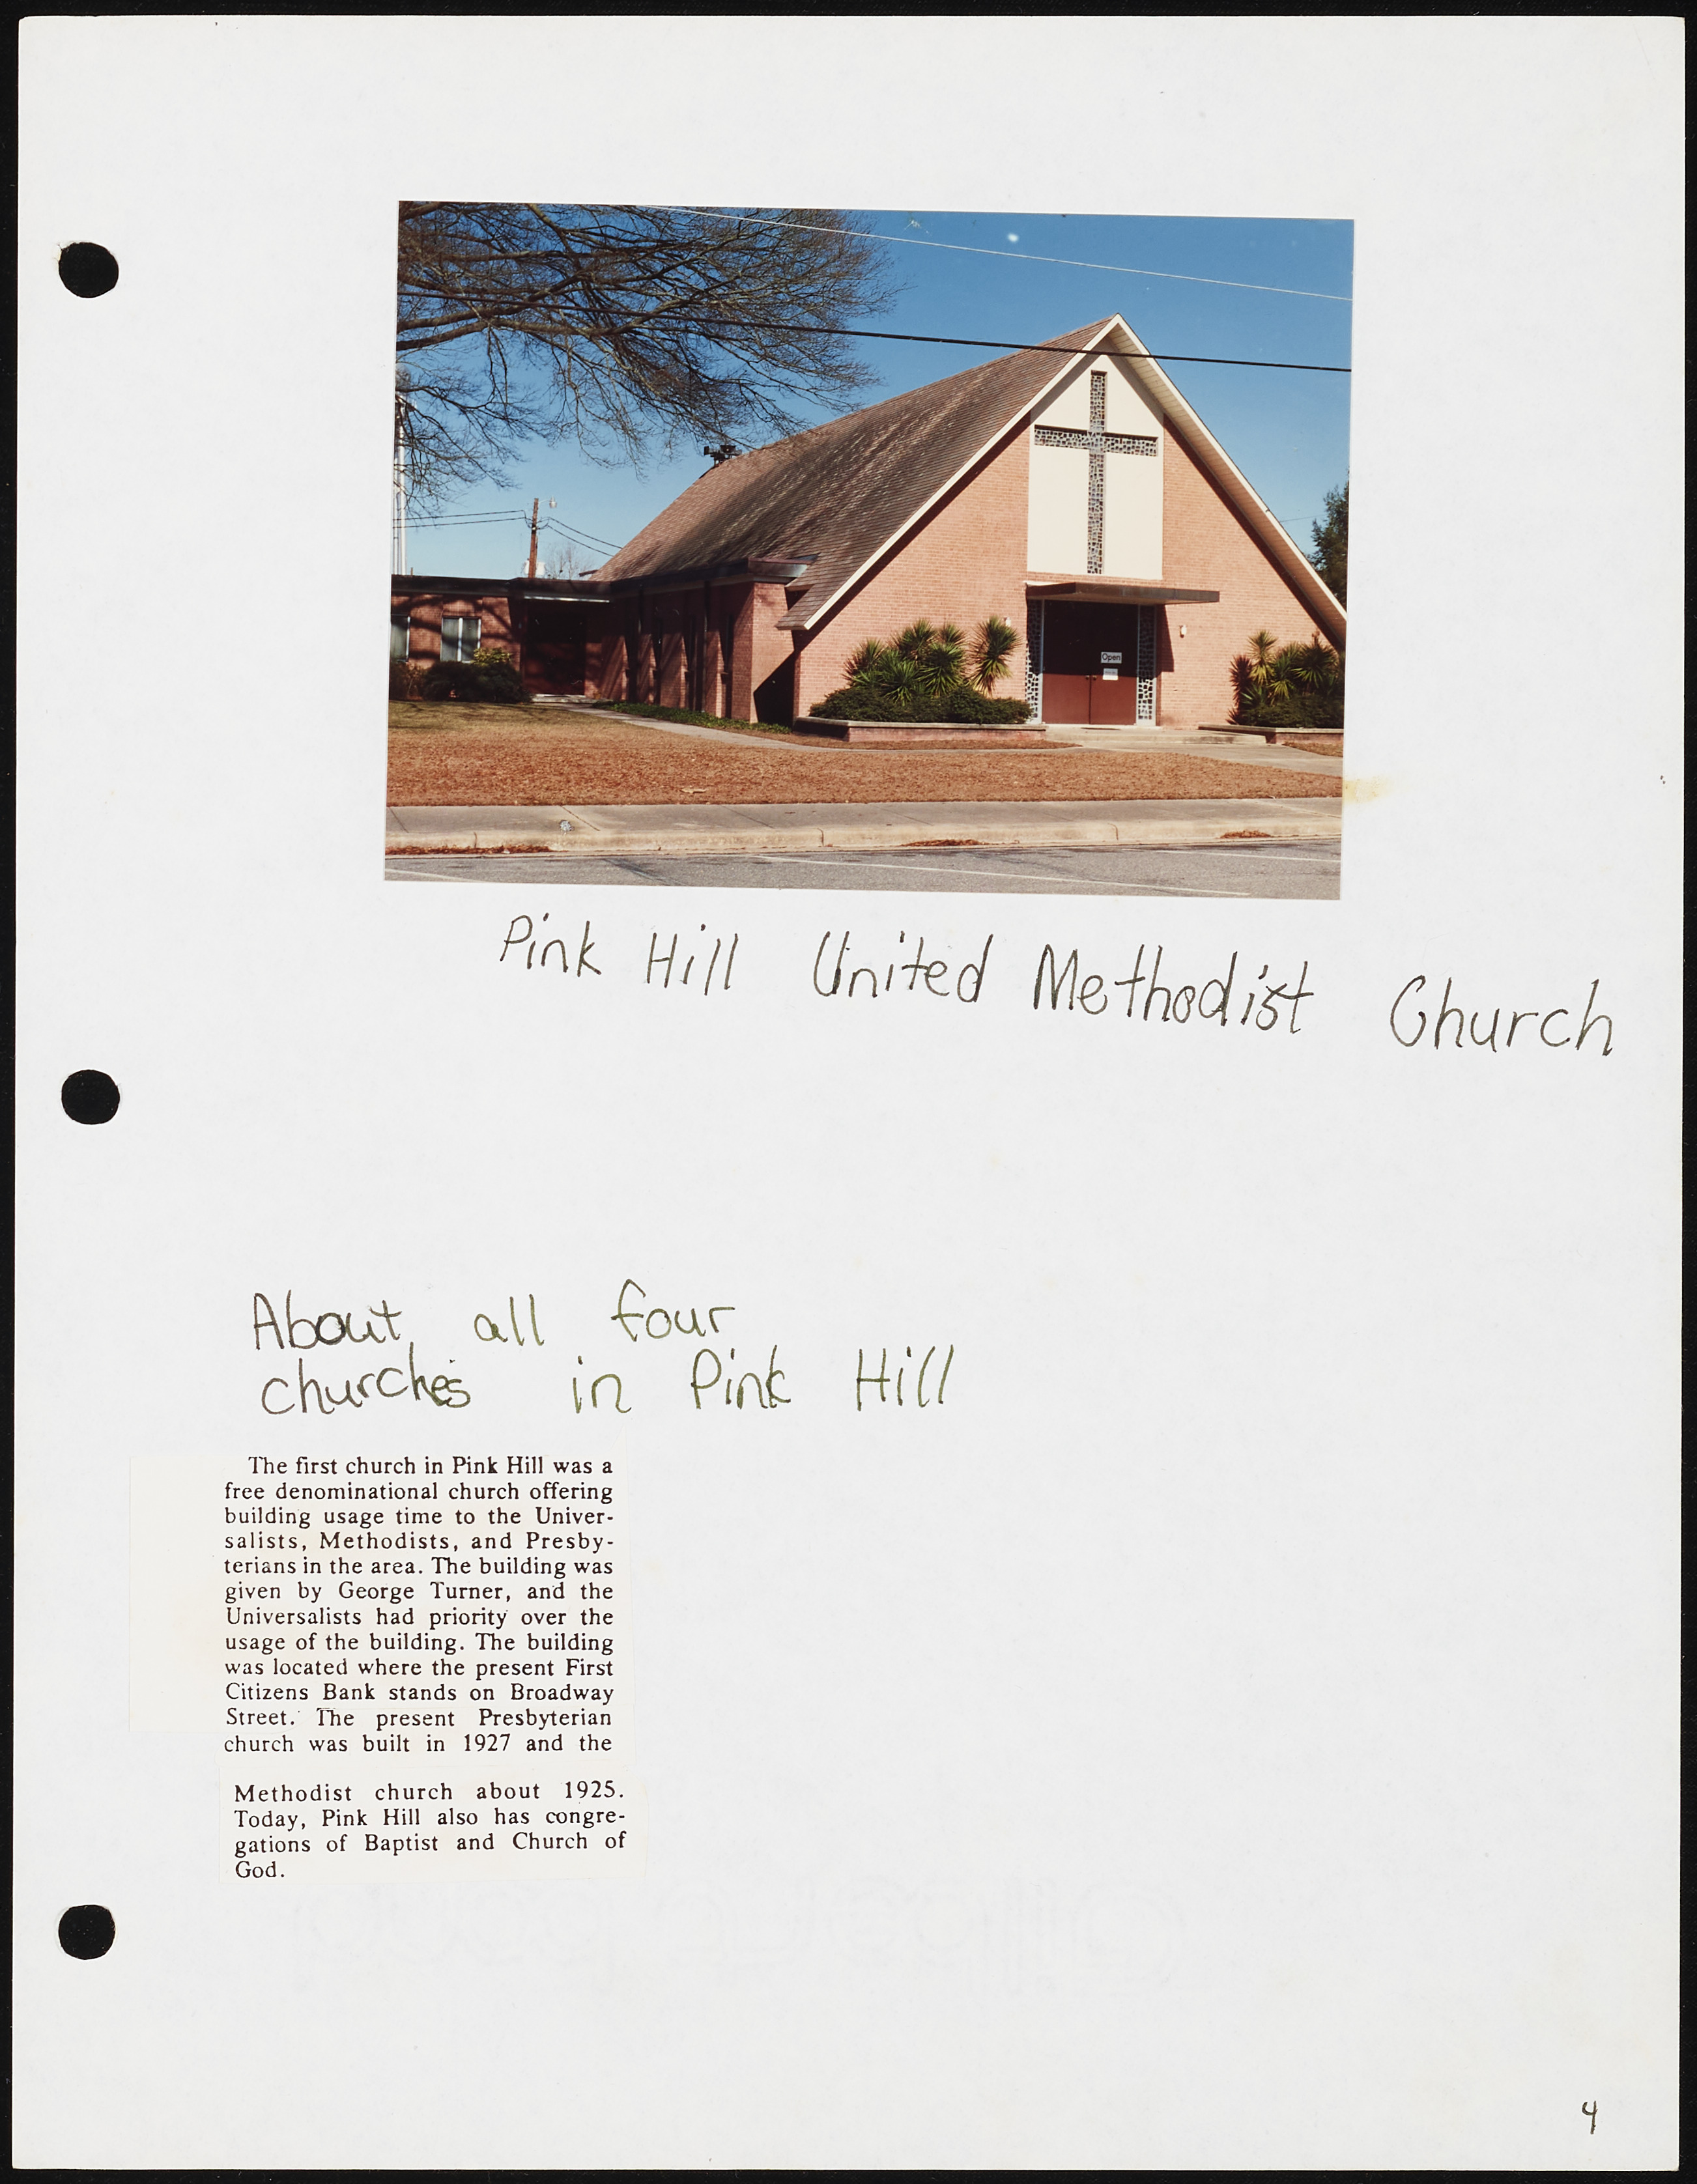 Open
Pink Hill United Methodist Church
About all four
churches in Pink Hill
The first church in Pink Hill was a
free denominational church offering
building usage time to the Univer-
salists, Methodists, and Presby-
terians in the area. The building was
given by George Turner, and the
Universalists had priority over the
usage of the building. The building
was located where the present First
Citizens Bank stands on Broadway
Street. The present Presbyterian
church was built in 1927 and the
Methodist church about 1925.
Today, Pink Hill also has congre-
gations of Baptist and Church of
God.
4